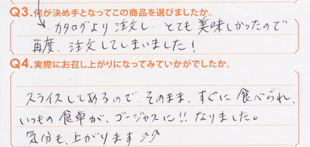 Q3.何が決め手となってこの商品を選びましたか。
カタログより注文し、とても美味しかったので
再度、注文してしまいました！
Q4.実際にお召し上がりになってみていかがでしたか。
スライスしてあるので、そのまま、すぐに食べられ、
いつもの食卓が、ゴージャスに!!なりました。
気分も、上がります♪♪